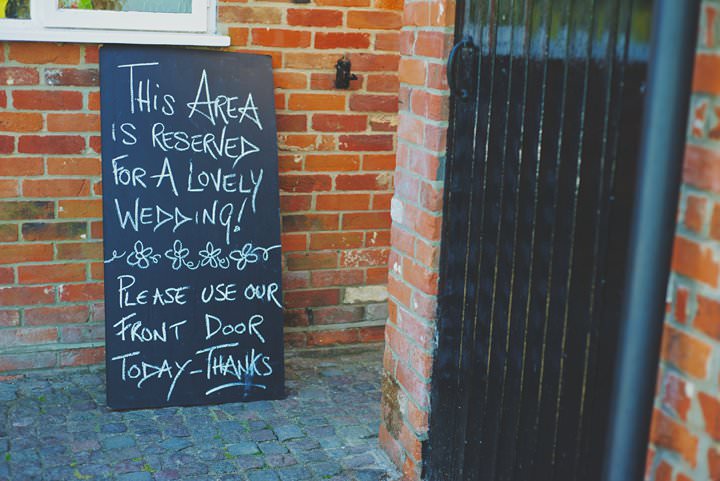 This Area
is Reserved
for a Lovely
Wedding!
Please use our
Front Door
Today - Thanks